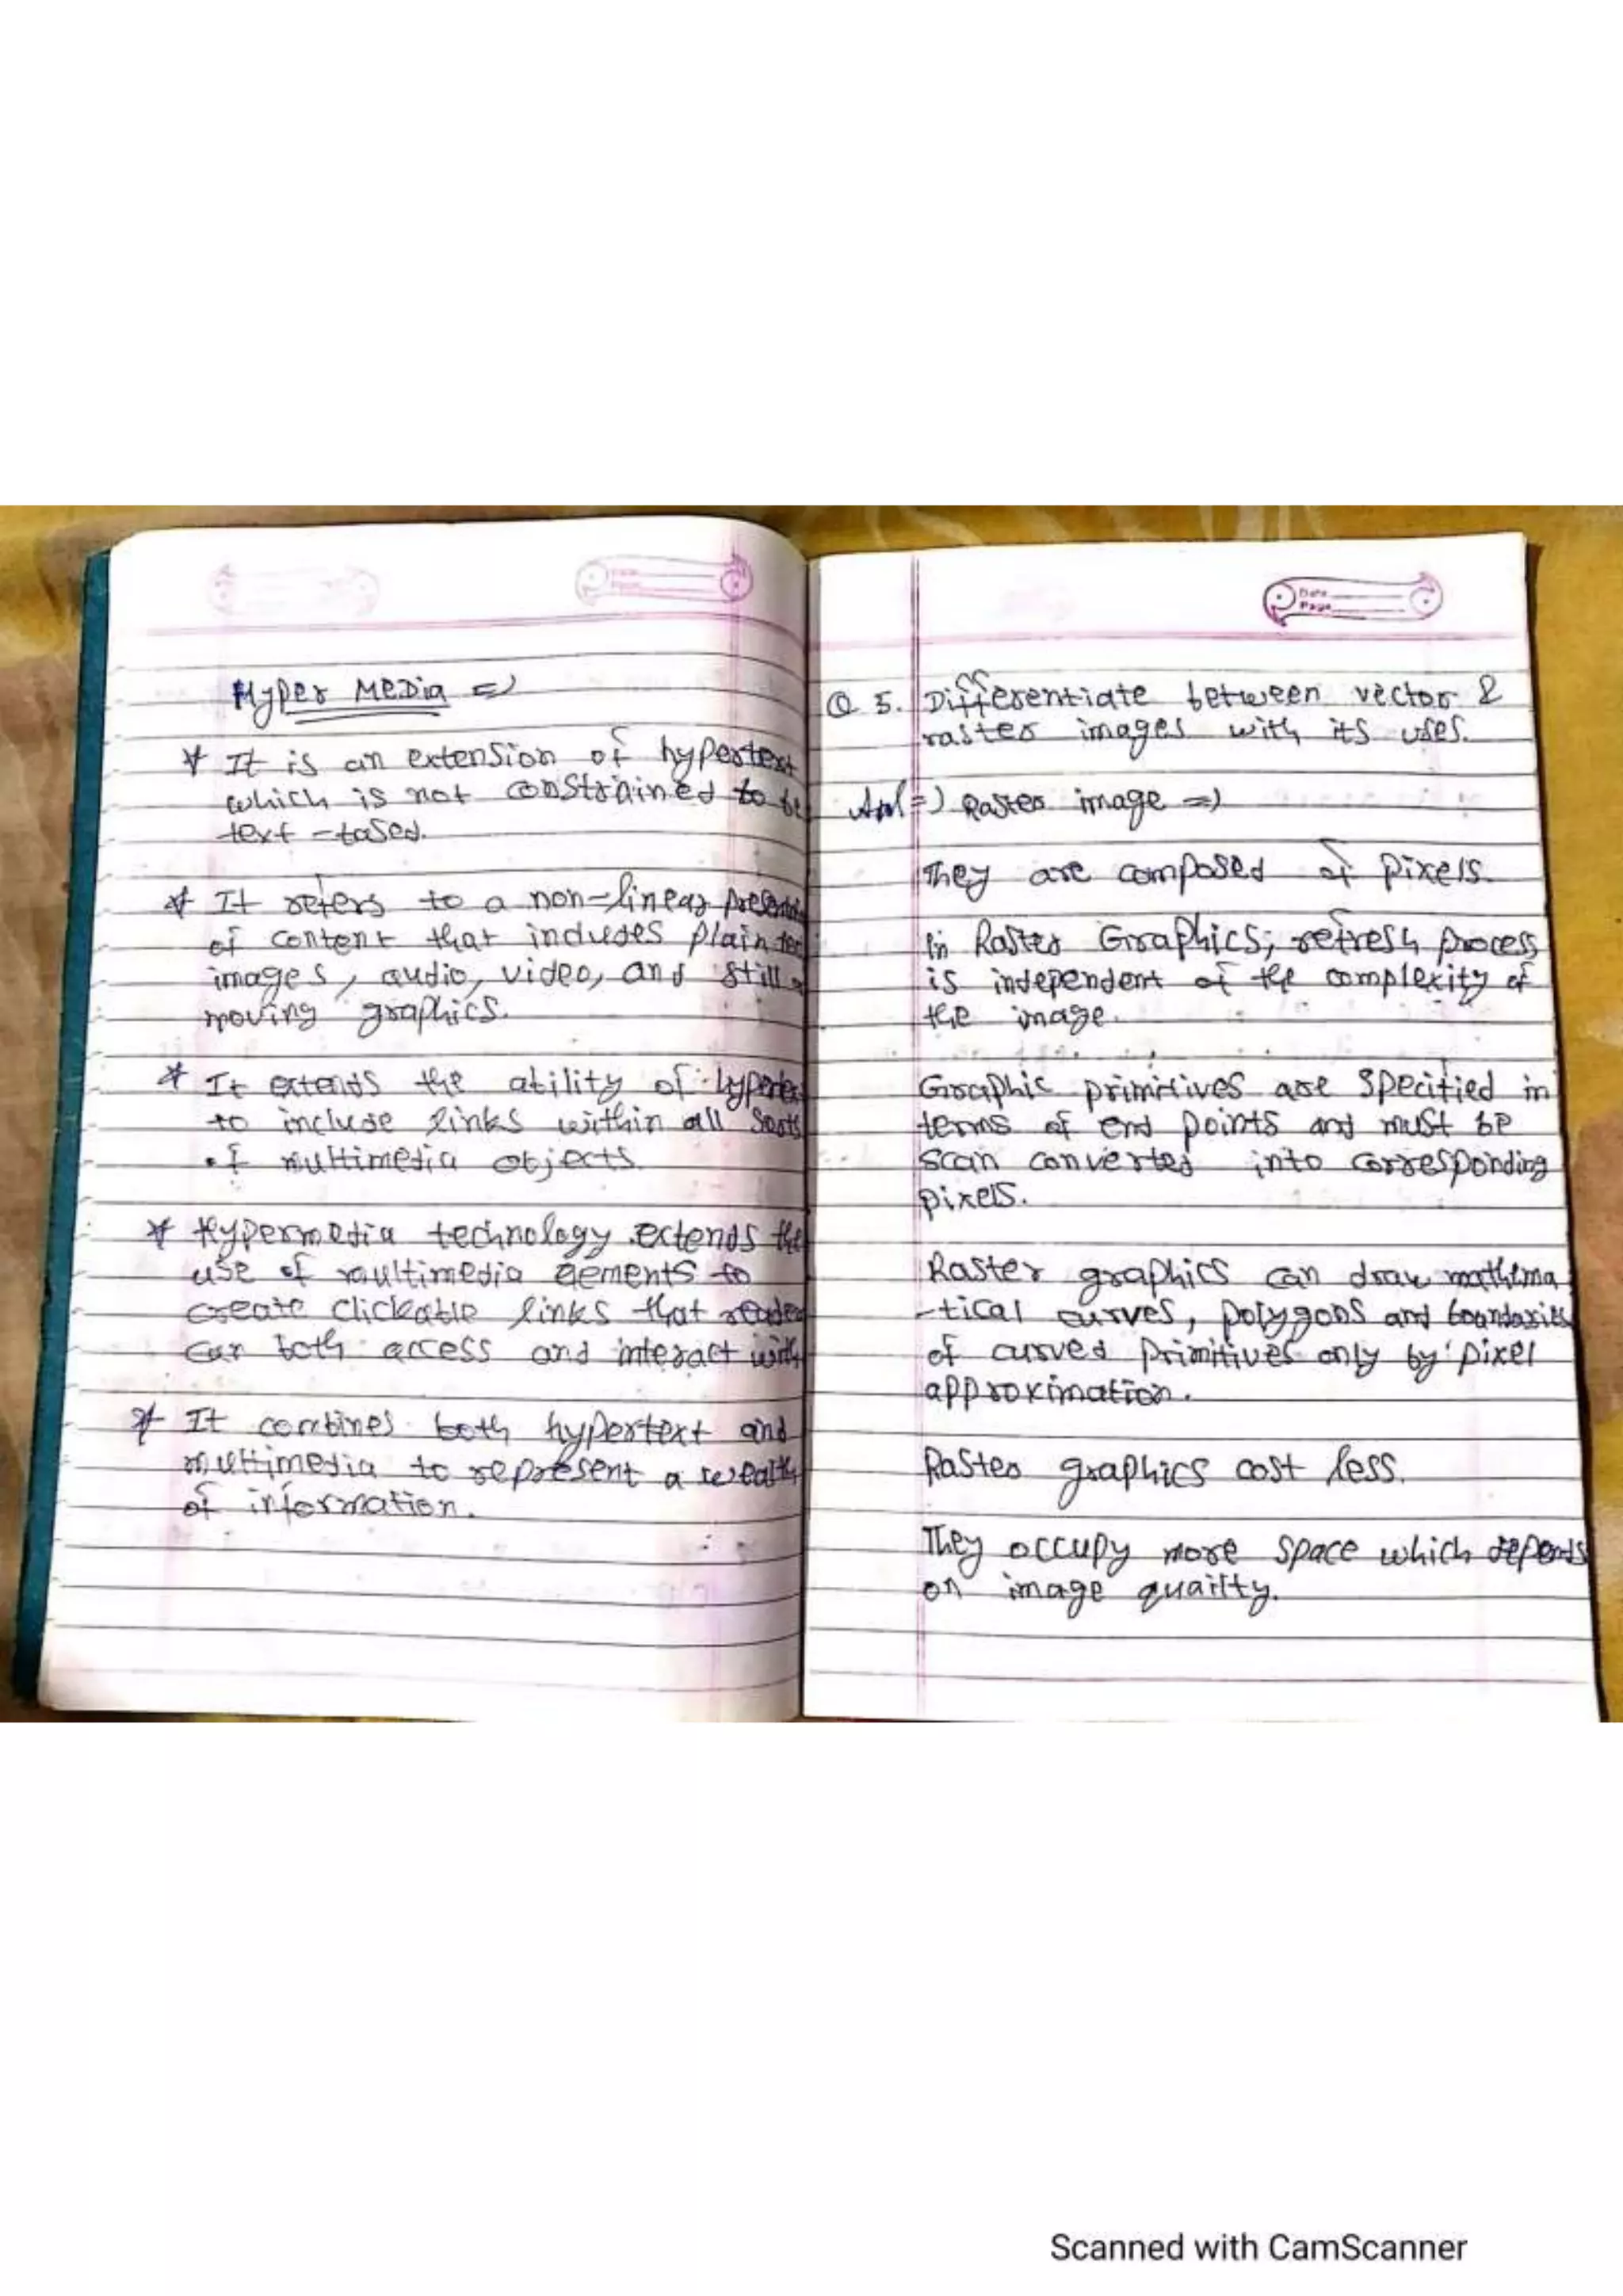 Hyper Media =>
* It is an extension of hypertext
which is not constrained to be
text-based.
* It refers to a non-linear
of content that includes plain
images, audio, video, and still
moving graphics.
* It extends the ability of
to include links within all Sorts
of multimedia objects.
* Hypermedia technology extends the
use of multimedia elements to
create clickable links that
can both access and interact with
* It combines both hypertext and
multimedia to represent a wealth
of information.
Date
Page
Q 5. Differentiate between vector &
raster images with its uses.
Ans => Raster image =>
They are composed of pixels.
In Raster Graphics; refresh process
is independent of the complexity of
the image.
Graphic primitives are specified in
terms of end points and must be
scan converted into corresponding
pixels.
Raster graphics can draw mathema
-tical curves, polygons and boundaries
of curved primitives only by pixel
approximation.
Raster graphics cost less.
They occupy more space which depends
on image quailty.
Scanned with CamScanner